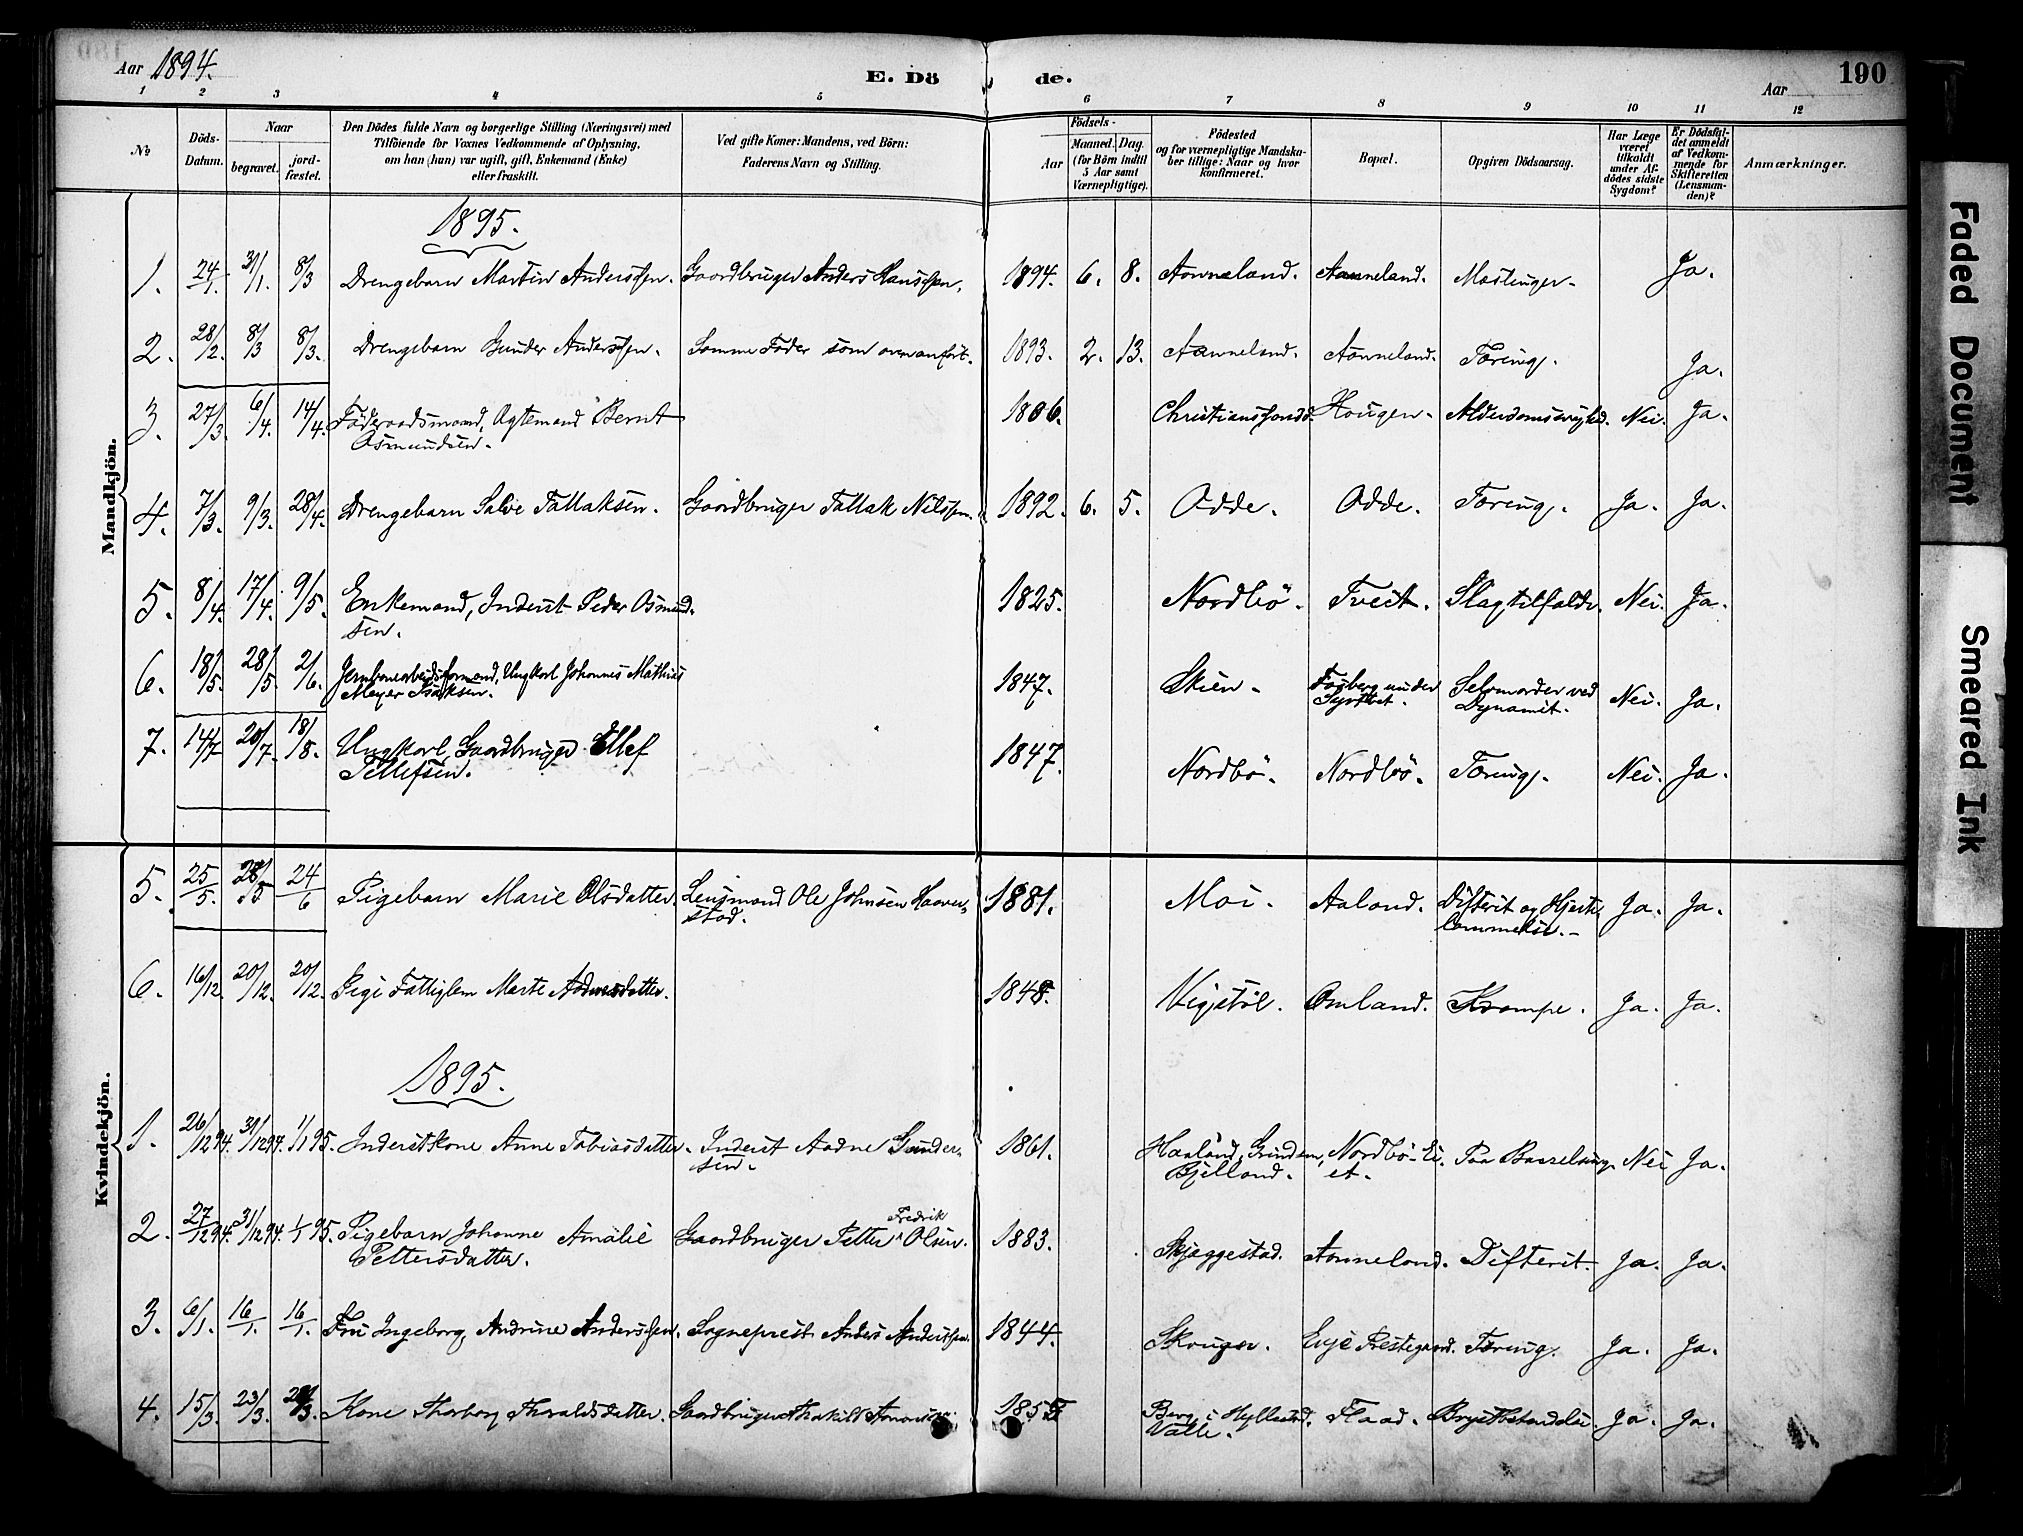 Aar 1894.
E. Dö de.
Aar
190
1 2 3 4 5 6 7 8 9 10 11 12
№
Döds-Datum.
Naar
begravet.
jord-fæstet.
Den Dödes fulde Navn og borgerlige Stilling (Næringsvei) med
Tilföiende for Voxnes Vedkommende af Oplysning,
om han (hun) var ugift, gift, Enkemand (Enke)
eller fraskilt.
Ved gifte Koner: Mandens, ved Börn:
Faderens Navn og Stilling.
Födsels-
Aar
Maaned. Dag.
(for Börn indtil
5 Aar samt
Værnepligtige).
Födested
og for værnepligtige Mandska-
ber tillige: Naar og hvor
konfirmeret.
Bopæl.
Opgiven Dödsaarsag.
Har Læge
været
tilkaldt
under Af-
dödes sidste
Sygdom?
Er Dödsfal-
det anmeldt
af Vedkom-
mende for
Skifteretten
(Lensman-
den)?
Anmærkninger.
Mandkjön.
1895.
1. 24/1. 31/1. 8/3 Drengebarn Martin Anderssen. Gaardbruger Anders Hanssen. 1894. 6. 8. Aanneland. Aanneland. Mæslinger. Ja.
2. 28/2. 8/3 8/3. Drengebarn Gunder Anderssen. Samme Fader som ovenanfört. 1893. 2. 13. Aanneland. Aanneland. Tæring. Ja.
3. 27/3. 6/4. 14/4. Föderaadsmand, Ægtemand Bernt
Osmundsen. 1806. Christianssand. Haugen. Alderdomssvaghed. Nei. Ja.
4. 7/3. 9/3. 28/4. Drengebarn Salve Tallaksen. Gaardbruger Tallak Nilssen. 1892. 6. 5. Odde. Odde. Tæring. Ja. Ja.
5. 8/4. 17/4. 9/5. Enkemand, Inderst Peder Osmund-
sen. 1825. Nordbö. Tveit. Slagtilfælde. Nei. Ja.
6. 18/5. 28/5. 2/6. Jernbanearbeidsformand, Ungkarl Johannes Mathias
Meyer Isaksen. 1847. Skien. Selvmorder ved
Dynamit. Nei. Ja.
7. 14/7 20/7. 18/8. Ungkarl, Gaardbruger Ellef
Tellefsen. 1847. Nordbö. Nordbö. Tæring. Nei. Ja.
Kvindekjön.
5. 25/5. 28/5 24/6 Pigebarn Marie Olsdatter. Lensmand Ole Johnsen Haaver-
stad. 1881. Moi. Aaland. Difterit og Hjerte-
lammelse. Ja. Ja.
6. 16/12. 20/12. 20/12. Pige Fattiglem Marte Aadnesdatter. 1848. Vigstöl. Omland. Krampe. Ja. Ja.
1895.
1. 26/12 94. 31/12 94. 1/1 95. Inderstkone Anne Tobiasdatter. Inderst Aadne Gunder-
sen. 1861. Haaland, Grindem,
Bjelland. Nordbö-Ei-
et. Paa Barselseng. Nei Ja.
2. 27/12 94. 31/12 94. 1/1 95. Pigebarn Johanne Amalie
Pettersdatter. Gaardbruger Petter Fredrik Olsen. 1883. Skjæggestad. Aanneland. Difterit. Ja. Ja.
3. 6/1. 16/1. 16/1. Fru Ingeborg Andrine Anderssen. Sogneprest Anders Anderssen. 1844. Skouger. Evje Prestegaard. Tæring. Ja. Ja.
4. 15/3. 23/3. Kone Thorborg Thoraldsdatter. Gaardbruger 1855 Berg i Hyllestad,
Valle. Flaad. Brystbetændelse. Ja. Ja.
Faded Document
Smeared Ink